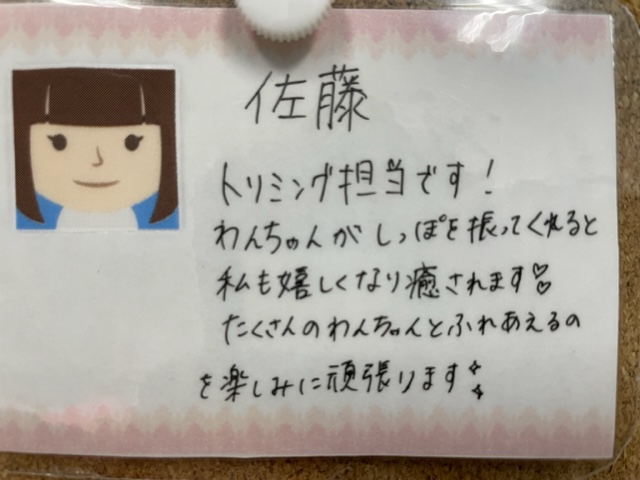 佐藤
トリミング担当です!
わんちゃんがしっぽを振ってくれると
私も嬉しくなり癒されます♡♡
たくさんのわんちゃんとふれあえるの
を楽しみに頑張ります✧✧